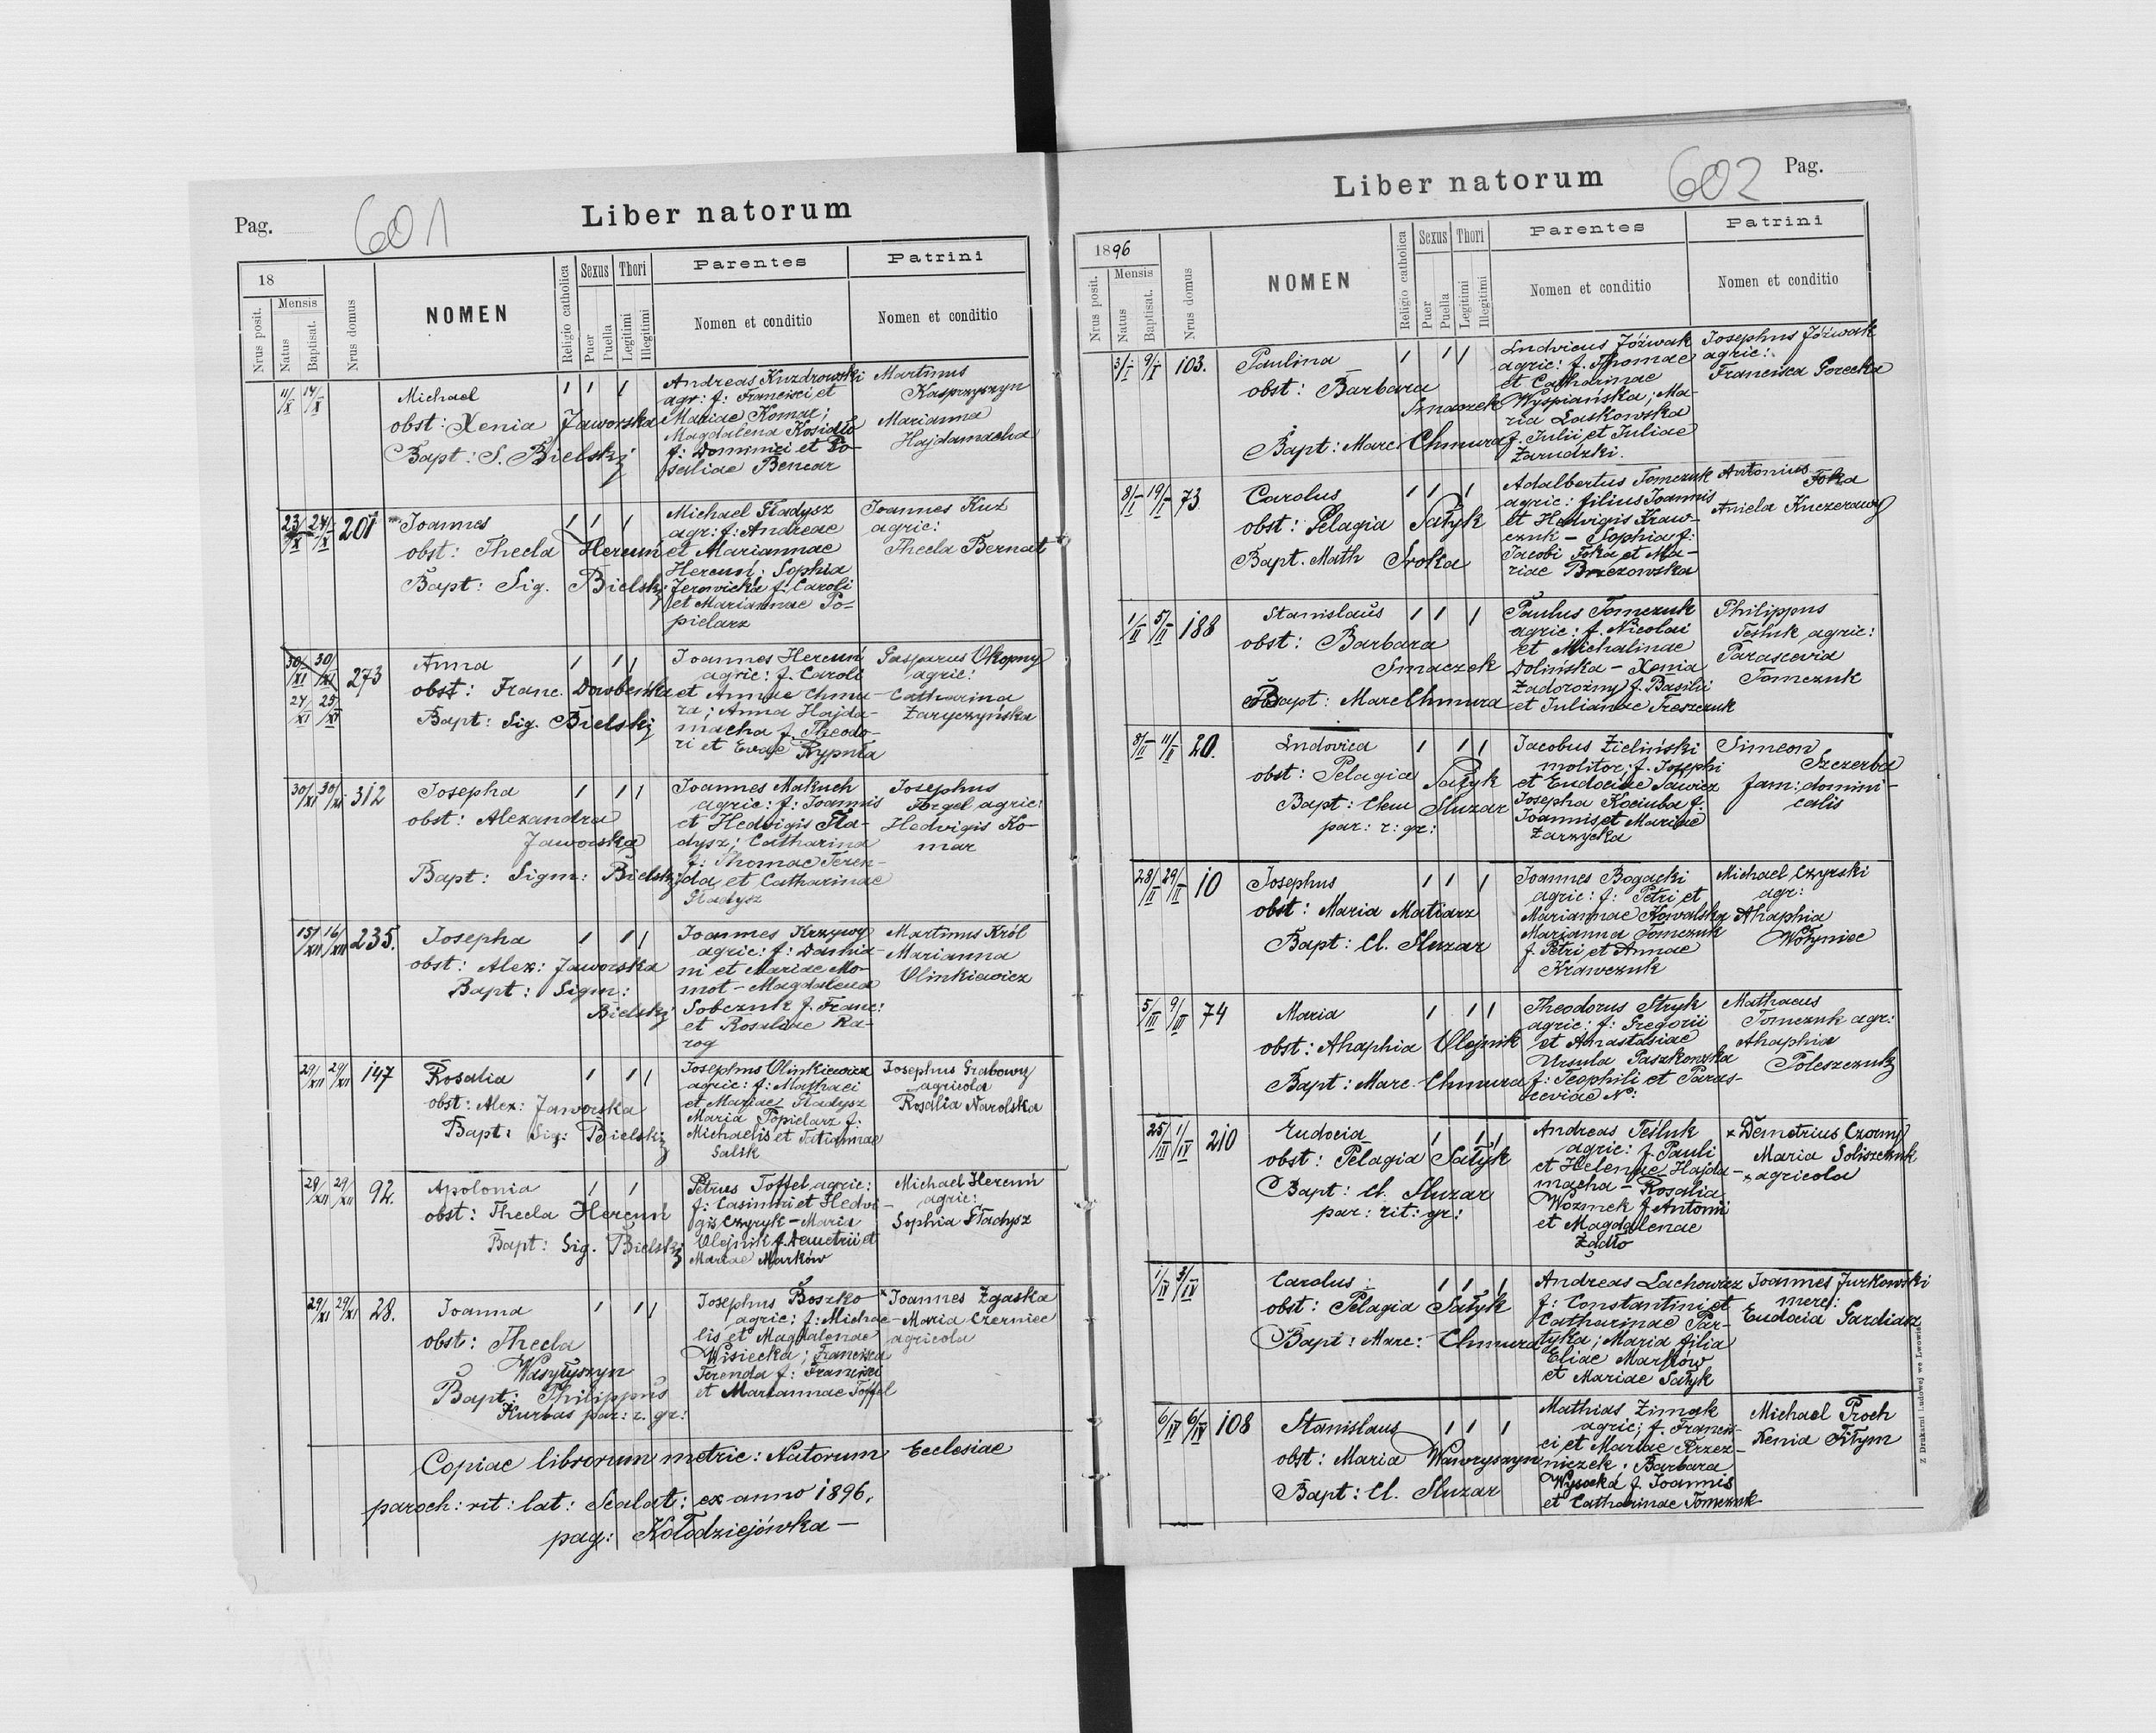 Pag.
601
Liber natorum
18
Nrus posit.
Mensis
Natus
Baptisat.
Nrus domus
NOMEN
Religio catholica
Sexus
Puer
Puella
Thori
Legitimi
Illegitimi
Parentes
Nomen et conditio
Patrini
Nomen et conditio
11/X 14/X
Michael
obst: Xenia Jaworska
Bapt: S. Bielski
Andreas Kuzdrowski
agr: f: Francisci et
Mariae Komar;
Magdalena Kosidło
f: Dominici et Ro-
saliae Bencar
Martinus
Kasprzyszyn
Marianna
Hajdamacha
23/X 24/X 201
Joannes
obst: Thecla Hercuń
Bapt: Sig. Bielski
Michael Gładysz
agr: f: Andreae
et Mariannae
Hercuń; Sophia
Jerowicka f: Caroli
et Mariannae Po-
pielarz
Joannes Kuz
agric:
Thecla Bernat
30/XI 30/XI 273
24/XI 25/XI
Anna
obst: Franc. Dowbeńka
Bapt: Sig. Bielski
Joannes Hercuń
agric: f. Caroli
et Annae Chmu-
ra; Anna Hajda-
macha f. Theodo-
ri et Evae Rypnia
Gasparus Okopny
agric:
Catharina
Zaryczyńska
30/XI 30/XI 312
Josepha
obst: Alexandra
Jaworska
Bapt: Sigm: Bielski
Joannes Makuch
agric: f: Joannis
et Hedvigis Gła-
dysz; Catharina
f: Thomae Feren-
da et Catharinae
Gładysz
Josephus
Forgel agric:
Hedvigis Ko-
mar
15/XII 16/XII 235.
Josepha
obst: Alex: Jaworska
Bapt: Sigm:
Bielski
Joannes Krzywy
agric: f: Damia-
ni et Mariae Mo-
mot - Magdalena
Sobczuk f. Franc:
et Rosaliae Ra-
rog
Martinus Król
Marianna
Olinkiewicz
29/XII 29/XII 147
Rosalia
obst: Alex: Jaworska
Bapt: Sig: Bielski
Josephus Olinkiewicz
agric: f: Mathaei
et Mariae Gładysz
Maria Popielarz f:
Michaelis et Tatiannae
Galsk
Josephus Grabowy
agricola
Rosalia Narolska
29/XII 29/XII 92.
Apolonia
obst: Thecla Hercuń
Bapt: Sig. Bielski
Petrus Toffel agric:
f: Casimiri et Hedvi-
gis Czyryk - Maria
Olejnik f. Demetrii et
Mariae Marków
Michael Hercuń
agric:
Sophia Gładysz
29/XI 29/XI 28.
Joanna
obst: Thecla
Wasyłyszyn
Bapt: Philippus
Kurbas par: r. gr:
Josephus Boszko
agric: f: Michae-
lis et Magdalenae
Wisiecka; Francisca
Ferenda f: Francisci
et Mariannae Toffel
× Joannes Zgaska
Maria Czerniec
agricola
Copiae librorum metric: Natorum Ecclesiae
paroch: rit: lat: Scalat: ex anno 1896.
pag: Kołodziejówka —
Liber natorum
602
Pag.
1896
Nrus posit.
Mensis
Natus
Baptisat.
Nrus domus
NOMEN
Religio catholica
Sexus
Puer
Puella
Thori
Legitimi
Illegitimi
Parentes
Nomen et conditio
Patrini
Nomen et conditio
3/I 9/I 103.
Paulina
obst: Barbara
Smaczek
Bapt: Marc. Chmura
Ludvicus Jóźwak
agric: f. Thomae
et Catharinae
Wyspiańska; Ma-
ria Laskowska
f. Julii et Juliae
Zarudzki.
Josephus Jóźwak
agric:
Francisca Gorecka
8/I 19/I 73
Carolus
obst: Pelagia Sałyk
Bapt. Math Sroka
Adalbertus Tomczuk
agric: filius Joannis
et Hedvigis Kraw-
czuk - Sophia f:
Jacobi Foka et Ma-
riae Brzezowska
Antonius
Foka
Aniela Kuczerawy
1/II 5/II 188
Stanislaus
obst: Barbara
Smaczek
Bapt: Marc Chmura
Paulus Tomczuk
agric: f. Nicolai
et Michalinae
Dolińska - Xenia
Zadorożny f. Basilii
et Julianae Treszczuk
Philippus
Teśluk agric:
Parascevia
Tomczuk
8/II 11/II 20.
Ludovica
obst: Pelagia Sałyk
Bapt: Clem Sluzar
par: r: gr:
Jacobus Zieliński
molitor; f. Josephi
et Eudociae Sawicz
Josepha Kociuba f.
Joannis et Mariae
Zarzycka
Simeon
Szczerba
fam: domini-
calis
28/II 29/II 10
Josephus
obst: Maria Matiarz
Bapt: Cl. Sluzar
Joannes Bogacki
agric: f: Petri et
Mariannae Kowalska
Marianna Tomczuk
f. Petri et Annae
Krawczuk
Michael Czyrski
agr:
Ahaphia
Wołyniec
5/III 9/III 74
Maria
obst: Ahaphia Olejnik
Bapt: Marc. Chmura
Theodorus Stryk
agric: f: Gregorii
et Anastasiae
Ursula Paszkowska
f: Teophili et Paras-
ceviae N:
Mathaeus
Tomczuk agr:
Ahaphia
Poleszczuk
25/III 1/IV 210
Eudocia
obst: Pelagia Sałyk
Bapt: Cl. Sluzar
par: rit: gr:
Andreas Teśluk
agric: f. Pauli
et Helenae Hajda-
macha - Rosalia
Wozmek f Antonii
et Magdalenae
Żądło
× Demetrius Czorny
Maria Soliszczuk
× agricola
1/IV 3/IV
Carolus
obst: Pelagia Sałyk
Bapt: Marc: Chmura
Andreas Lachowicz
f: Constantini et
Catharinae Par-
tyka; Maria filia
Eliae Marków
et Mariae Sałyk
Joannes Jurkowski
merc:
Eudocia Gardiasz
6/IV 6/IV 108
Stanislaus
obst: Maria Wawryszyn
Bapt: Cl. Sluzar
Mathias Zimak
agric; f. Francis-
ci et Mariae Krzez-
niczek. Barbara
Wysocka f. Joannis
et Catharinae Tomczuk
Michael Proch
Xenia Fitym
Z Drukarni Ludowej we Lwowie